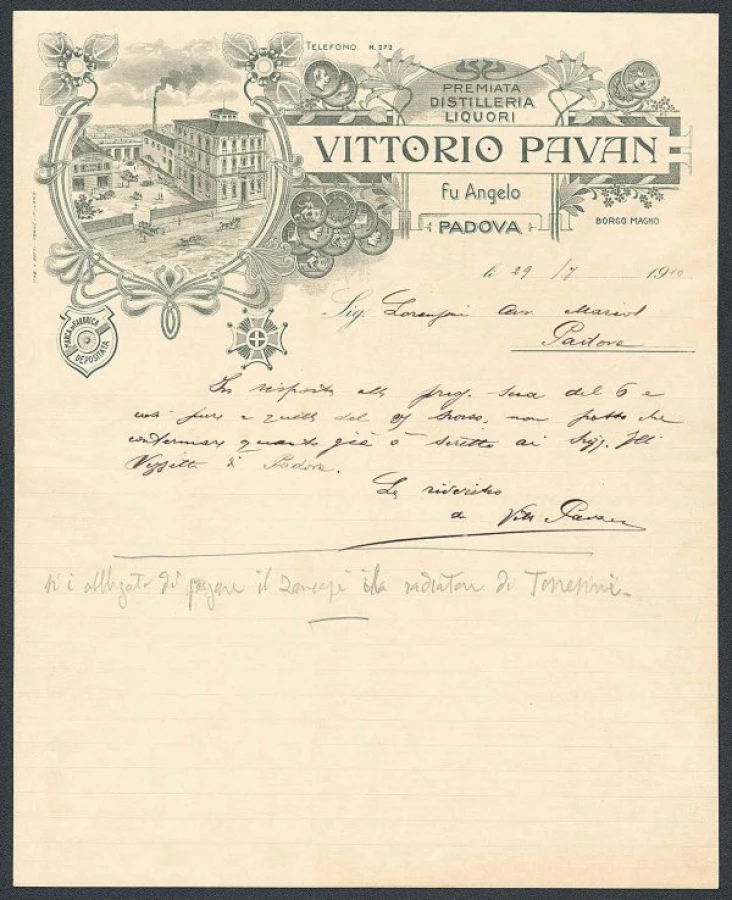 TELEFONO N. 272
PREMIATA
DISTILLERIA
LIQUORI
VITTORIO PAVAN
fu Angelo
PADOVA
BORGO MAGNO
MARCA DI FABBRICA
DEPOSITATA
li 29 /7 1910
Sig. Lorenzoni Avv.
Padova
In risposta alla preg. sua del 6 e
così pure a quella del 9 no, non posso che
confermare quanto già ò scritto ai Sigg. Flli
di Padova.
La riverisco
Vitt. Pavan
si è obbligato di pagare il radiatore di